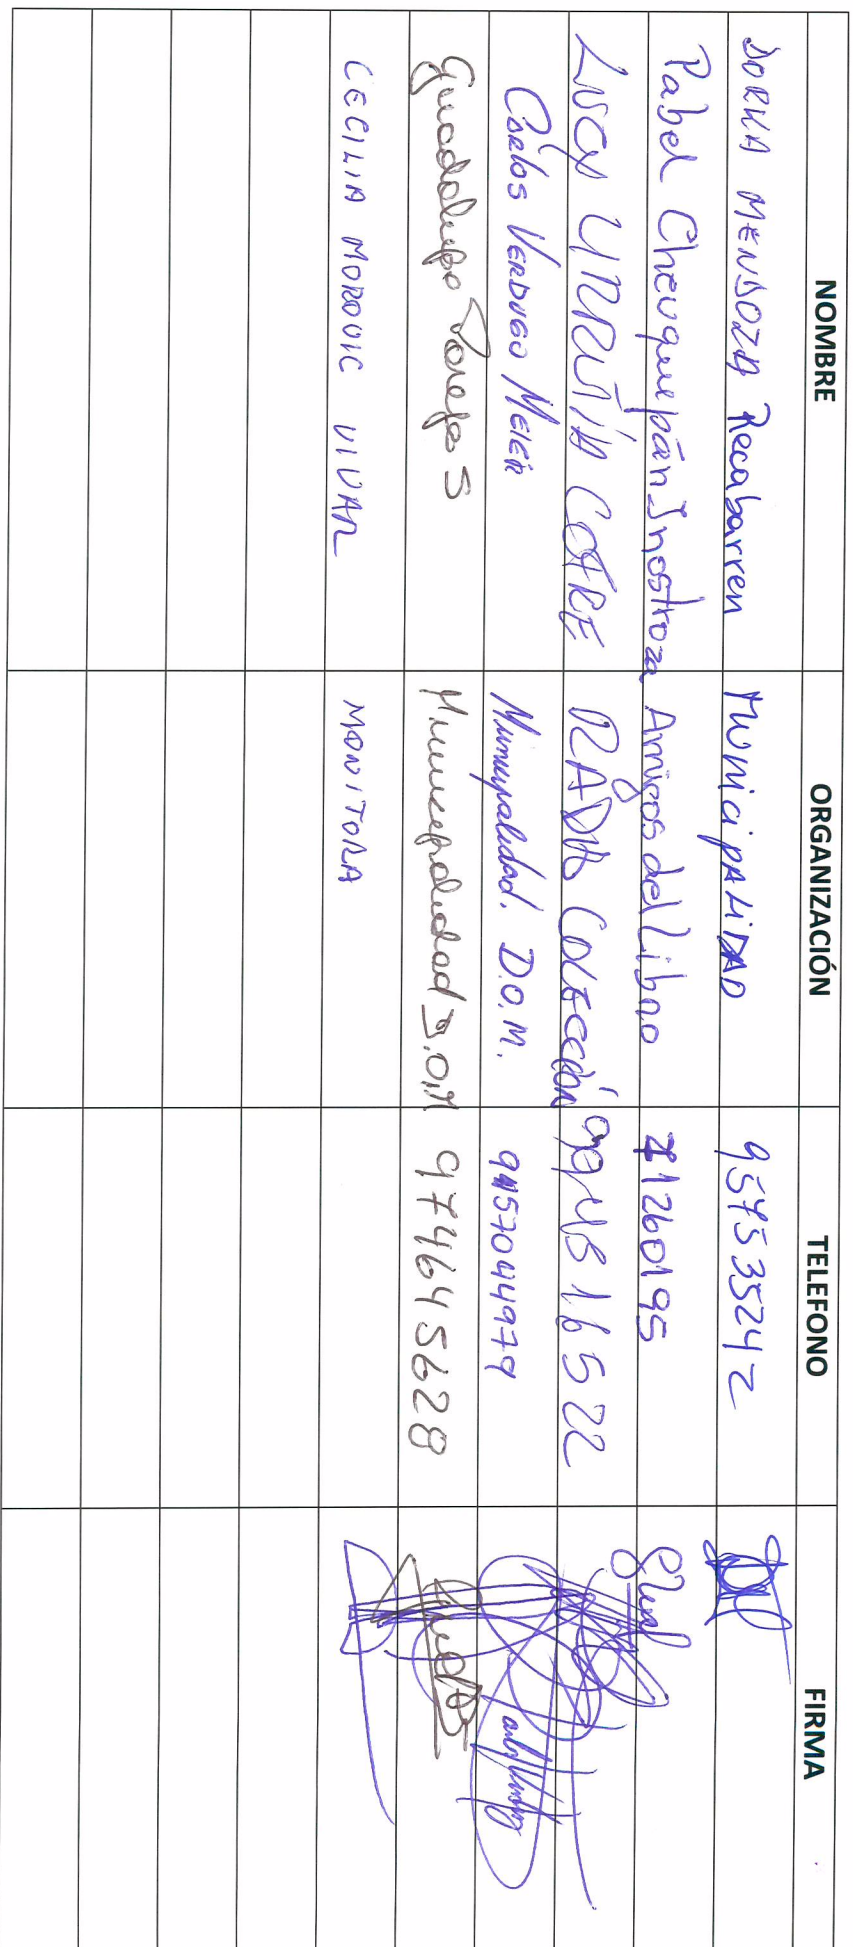 NOMBRE ORGANIZACIÓN TELEFONO FIRMA
DORKA MENDOZA Recabarren MUNICIPALIDAD
Pabel Cheuquepán Inostroza Amigos del Libro 71260195
LUCY URRUTIA COFRE RADIO Colección
Carlos VERDUGO MEIER Municipalidad. D.O.M.
Guadalupe S Municipalidad D.O.M 974645628
CECILIA MOROVIC VIVAR MONITORA